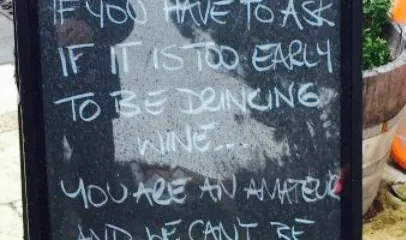 IF YOU HAVE TO ASK
IF IT IS TOO EARLY
TO BE DRINKING
WINE...
YOU ARE AN AMATEUR
AND WE CAN'T BE